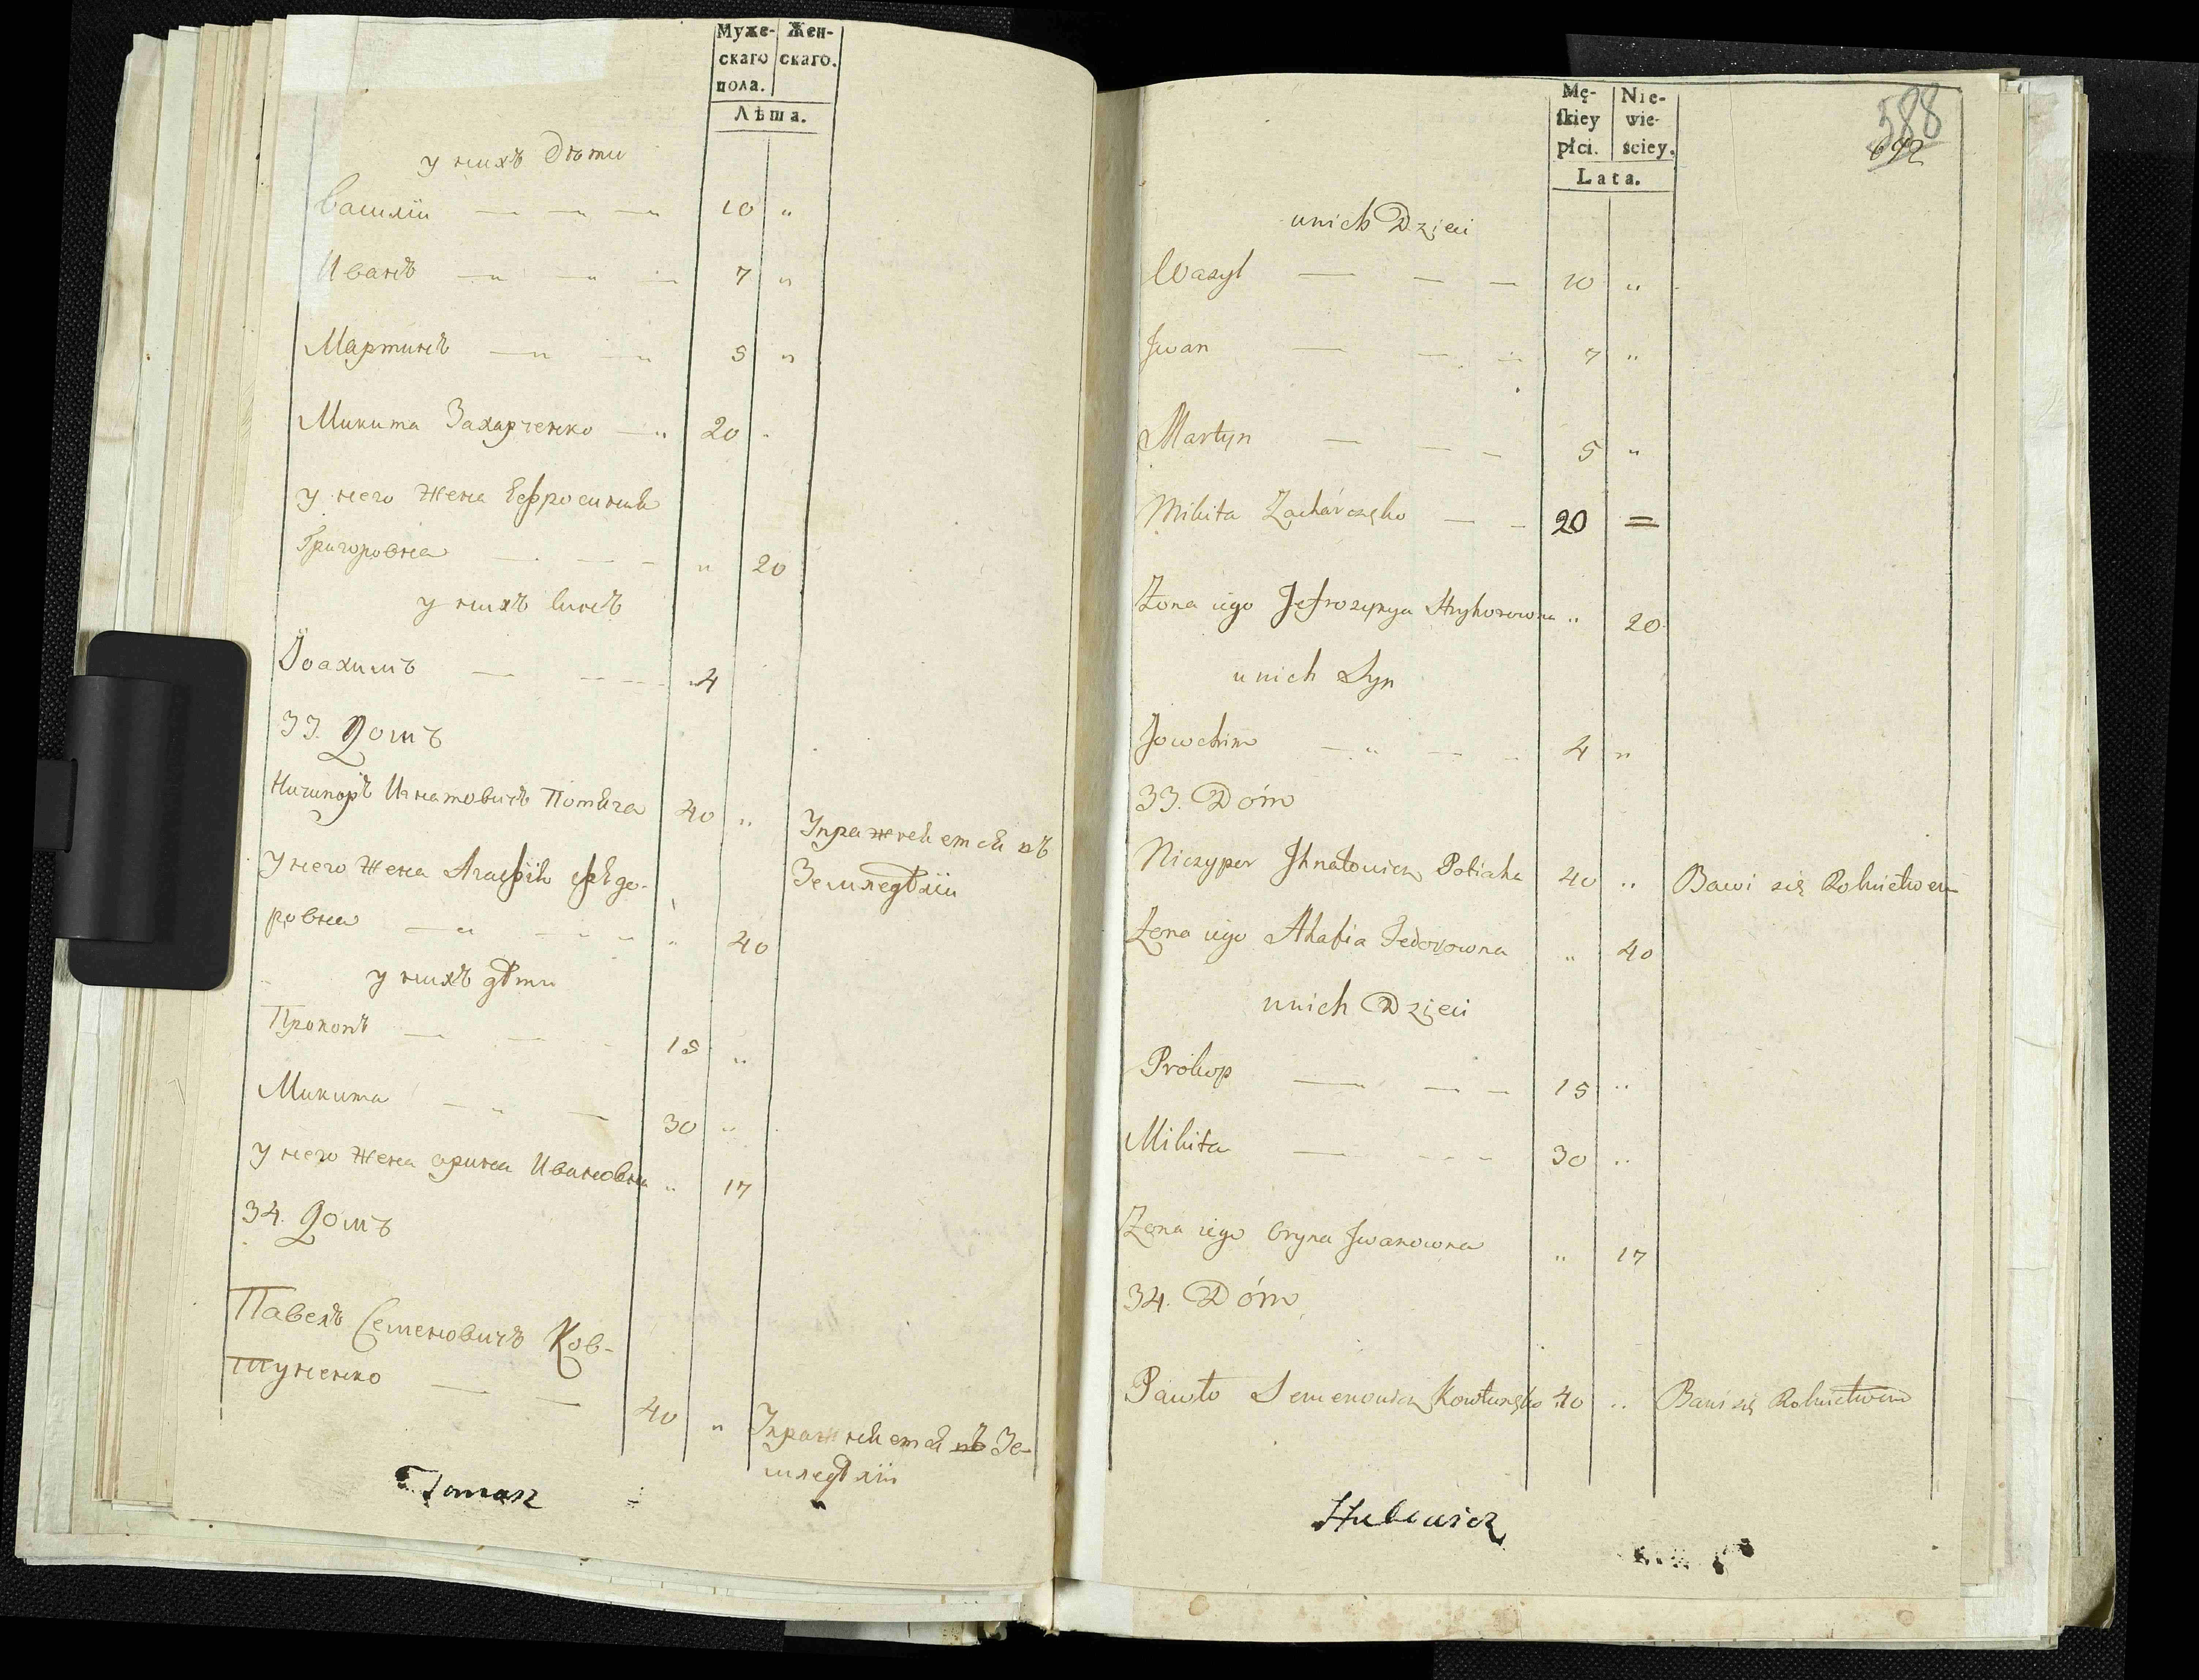 Муже- Жен-
скаго скаго.
пола.
Лѣта.
у нихъ дѣти
Василіи 10 "
Иванъ 7 "
Мартинъ 5 "
Микита Захарченко 20 "
у него жена Ефросинія
Григоровна " 20
у нихъ синъ
Іоахимъ 4
33. Домъ
Ничипоръ Игнатовичъ Потѣга 40 " Упражняется въ
Земледѣліи
у него жена Агафія Ѳедо-
ровна " 40
у нихъ дѣти
Прокопъ 15 "
Микита 30 "
у него жена орина Ивановна " 17
34. Домъ
Павелъ Семеновичъ Ков-
туненко 40 " Упражняется въ Зе-
мледѣліи
Tomasz
Mę- Nie-
skiey wie-
płci. sciey.
Lata.
588
692
unich Dzieci
Wasyl 10 "
Jwan 7 "
Martyn 5 "
Mikita Zacharczęko 20 =
Żona iego Jefrozynya Hryhorowna " 20
unich Syn
Jowchim 4 "
33. Dóm
Niczypor Jhnatowicz Potiaha 40 " Bawi się Rolnictwem
Żona iego Ahafia Fedorowna " 40
unich Dzieci
Prokop 15 "
Mikita 30 "
Żona iego Oryna Jwanowna " 17
34. Dóm
Pawło Semenowicz Kowtunęko 40 " Bawi się Rolnictwem
Hulewicz